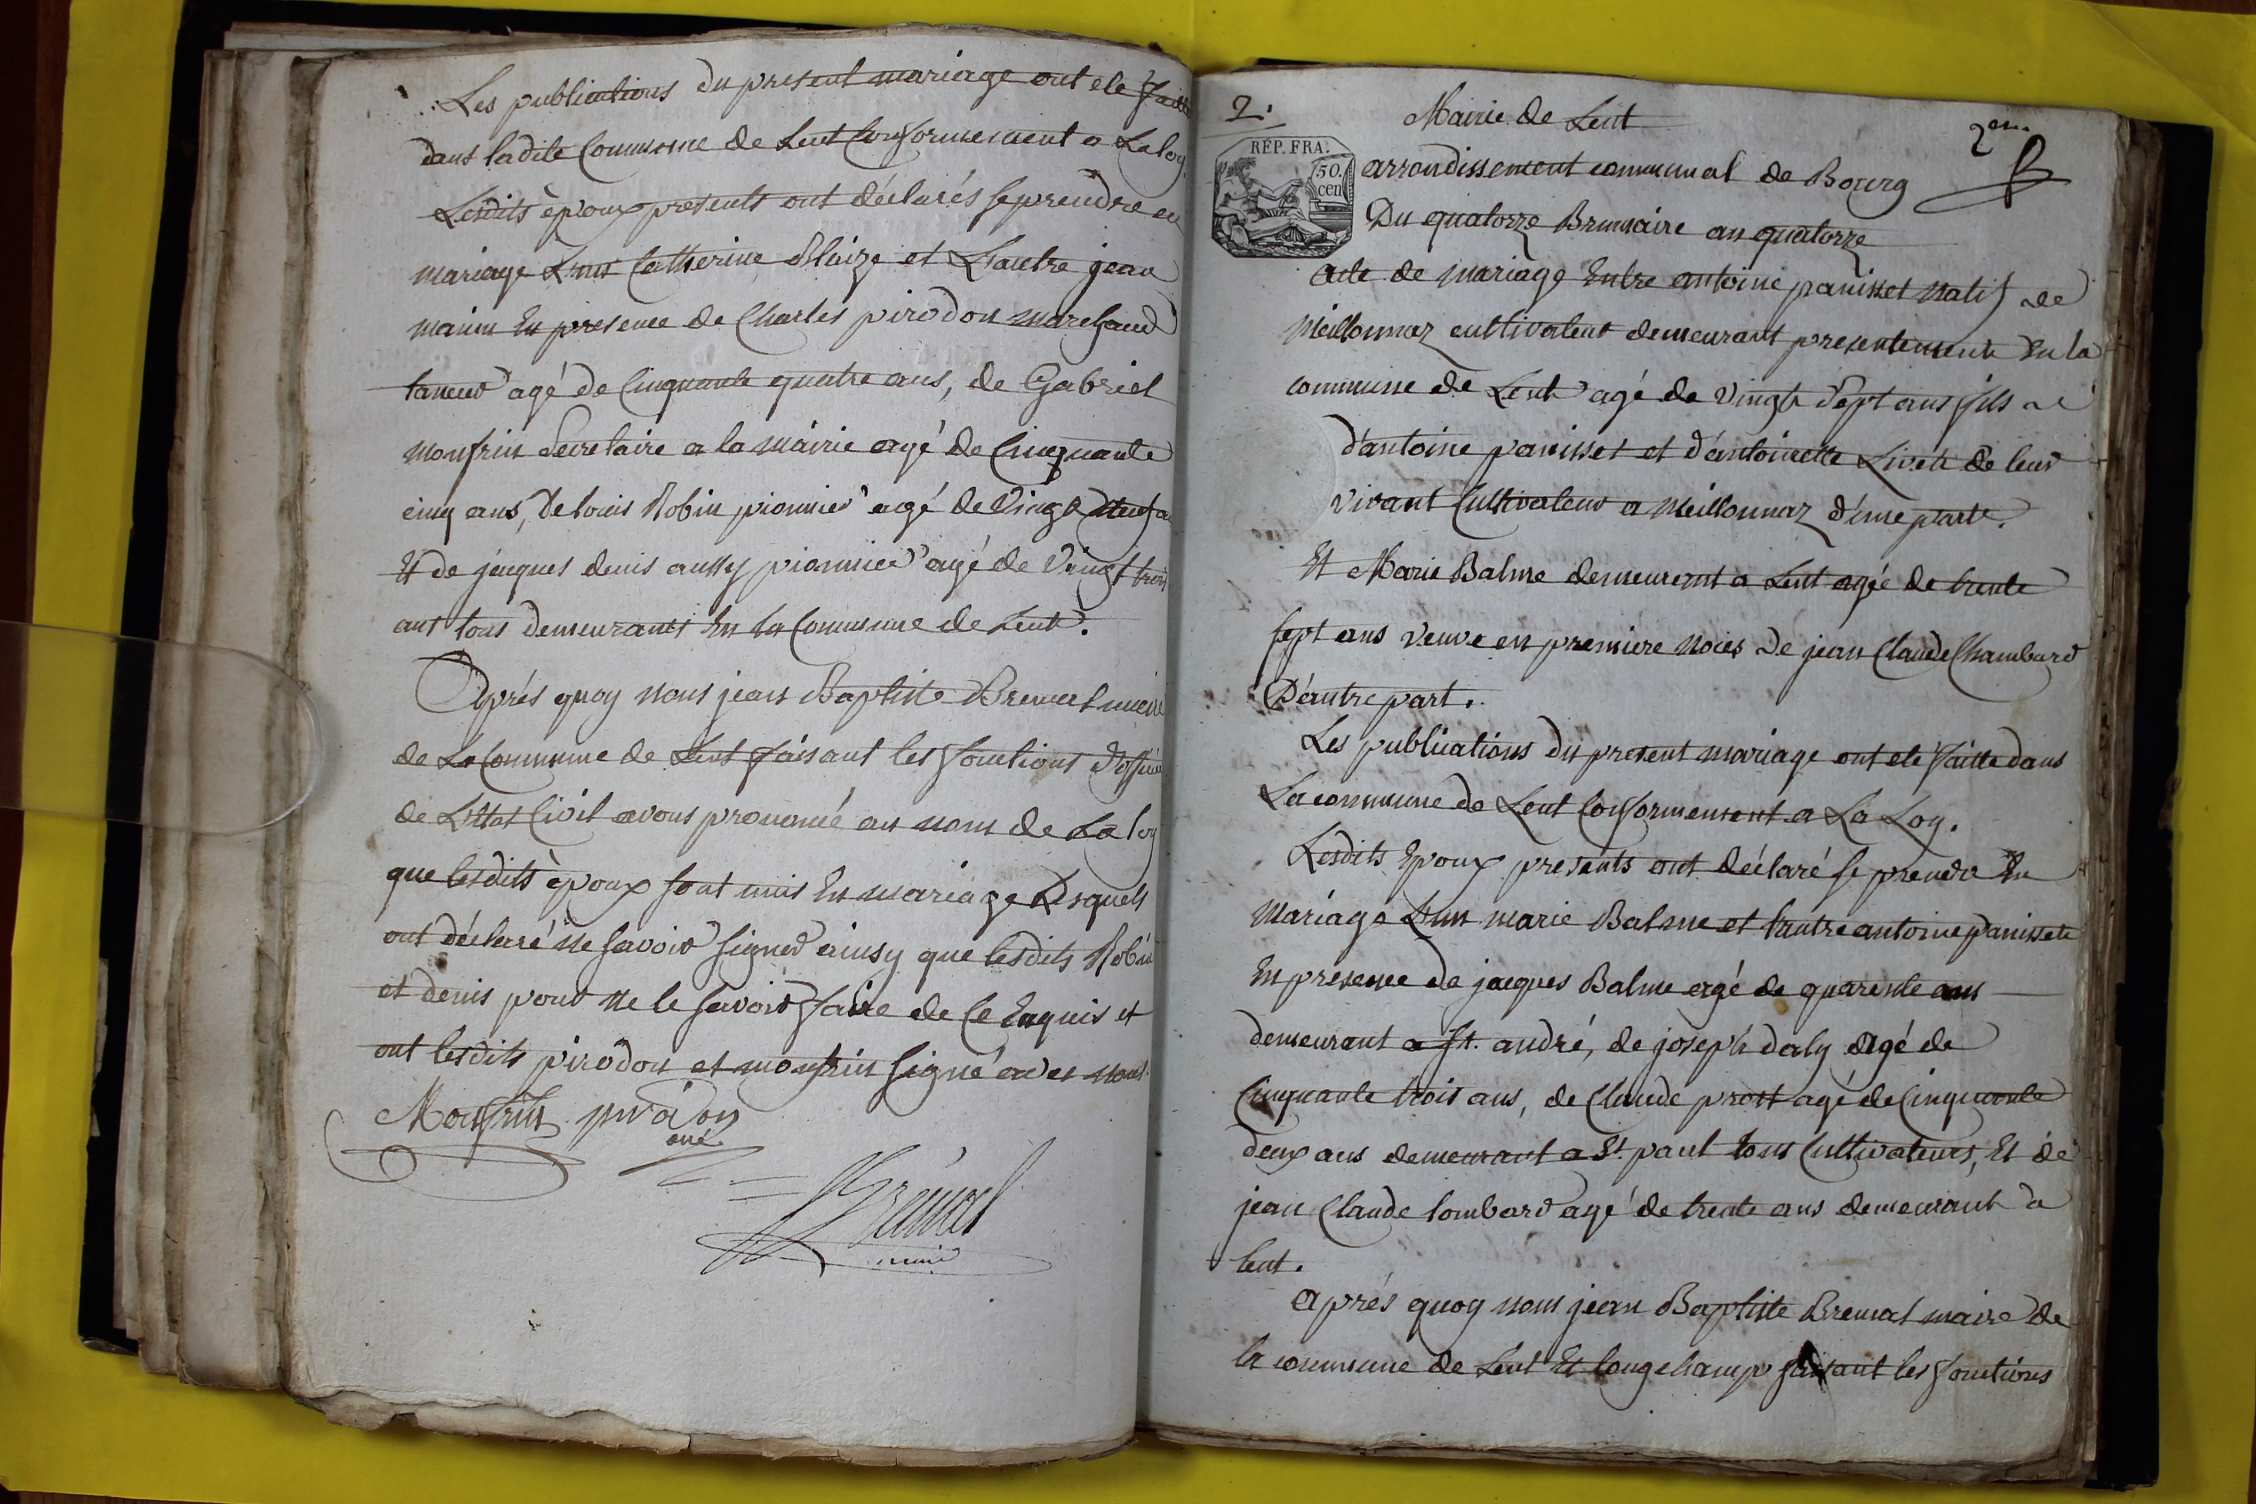 Les publications du present mariage ont ete faitte
dans ladite Commune de Lent Conformement a La loy
Lesdits époux presents ont déclarés se prendre en
mariage L'un Catherine Blaize et L'autre jean
manin En presence de Charles pirodon marchand
taneur agé de Cinquante quatre ans, de Gabriel
monfrin Secretaire a la mairie agé de Cinquante
cinq ans, de louis Robin pionnier agé de Vingt neuf
Et de jacques denis aussy pionnier agé de Vingt trois
ans tous demeurants En la Commune de Lent.
Aprés quoy nous jean Baptiste Breuvat maire
de La Commune de Lent faisant les fonctions d'officier
de L'Etat Civil avons prononcé au nom de La loy
que lesdits époux sont unis En mariage Lesquels
ont déclaré ne savoir signer ainsy que lesdits Robin
et denis pour ne le savoir faire de Ce Enquis et
ont lesdits pirodon et monfrin signé avec nous
Monfrin pirodon
maire
2.
Mairie de Lent
2em.
REP. FRA.
50.
cen
arrondissement communal de Bourg
Du quatorze Brumaire an quatorze
acte de mariage Entre antoine panisset natif de
Meillonnaz cultivateur demeurant presentement En la
commune de Lent agé de vingt Sept ans fils
d'antoine panisset et d'antoinette Livet de leur
vivant Cultivateur a Meillonnaz d'une part.
Et Marie Balme demeurant a Lent agée de trente
sept ans veuve en premiere noces de jean Claude Chambard
D'autre part.
Les publications du present mariage ont eté faitte dans
La commune de Lent Conformement a La Loy.
Lesdits Epoux presents ont déclaré se prendre En
mariage L'un marie Balme et l'autre antoine panissete
En presence de jacques Balme agé de quarente ans
demeurant a St. andré, de joseph daly agé de
Cinquante trois ans, de Claude prost agé de Cinquante
deux ans demeurant a St. paul tous Cultivateurs, Et de
jean Claude lombard agé de trente ans demeurant a
lent.
aprés quoy nous jean Baptiste Breuvat maire de
la commune de Lent Et longchamp faisant les fonctions